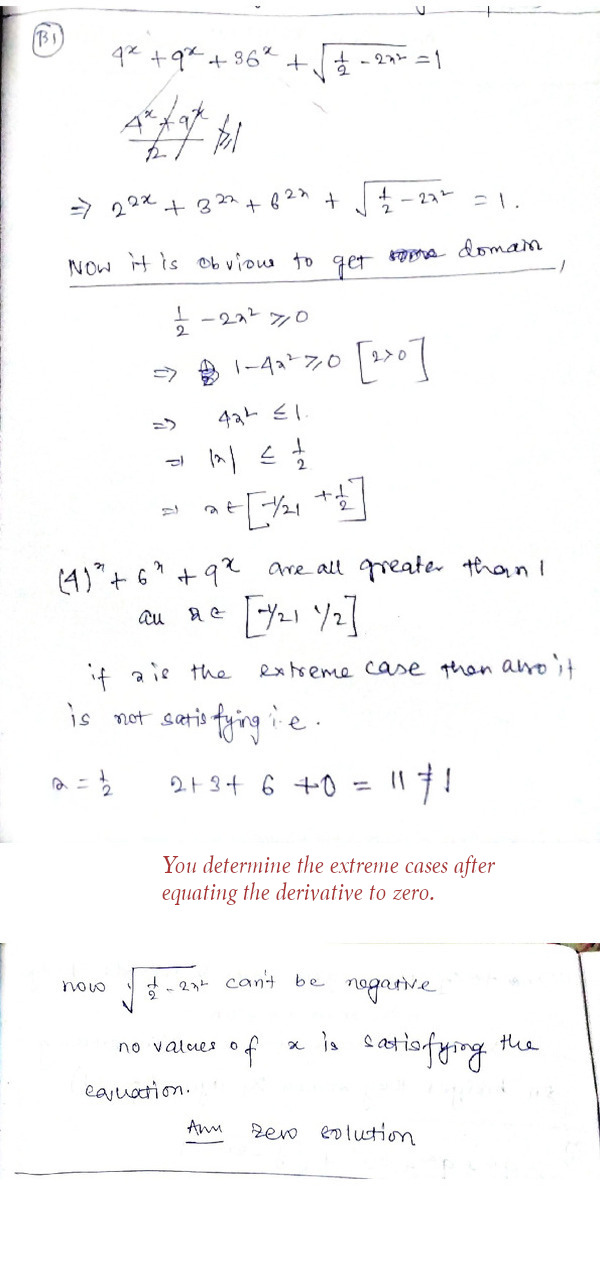 B1
4^x + 9^x + 36^x + √(1/2 - 2x²) = 1
4^x + 9^x / 2 ≥ 1
⇒ 2^2x + 3^2x + 6^2x + √(1/2 - 2x²) = 1.
Now it is obvious to get some domain,
1/2 - 2x² ≥ 0
⇒ 1 - 4x² ≥ 0 [2>0]
⇒ 4x² ≤ 1.
⇒ |x| ≤ 1/2
⇒ x ∈ [-1/2, +1/2]
(4)^x + 6^x + 9^x are all greater than 1
all x ∈ [-1/2, 1/2]
if x is the extreme case then also it
is not satisfying i.e.
x = 1/2 2+3+ 6 +0 = 11 ≠ 1
You determine the extreme cases after
equating the derivative to zero.
now √(1/2 - 2x²) can't be negative
no values of x is satisfying the
equation.
Ans zero solution